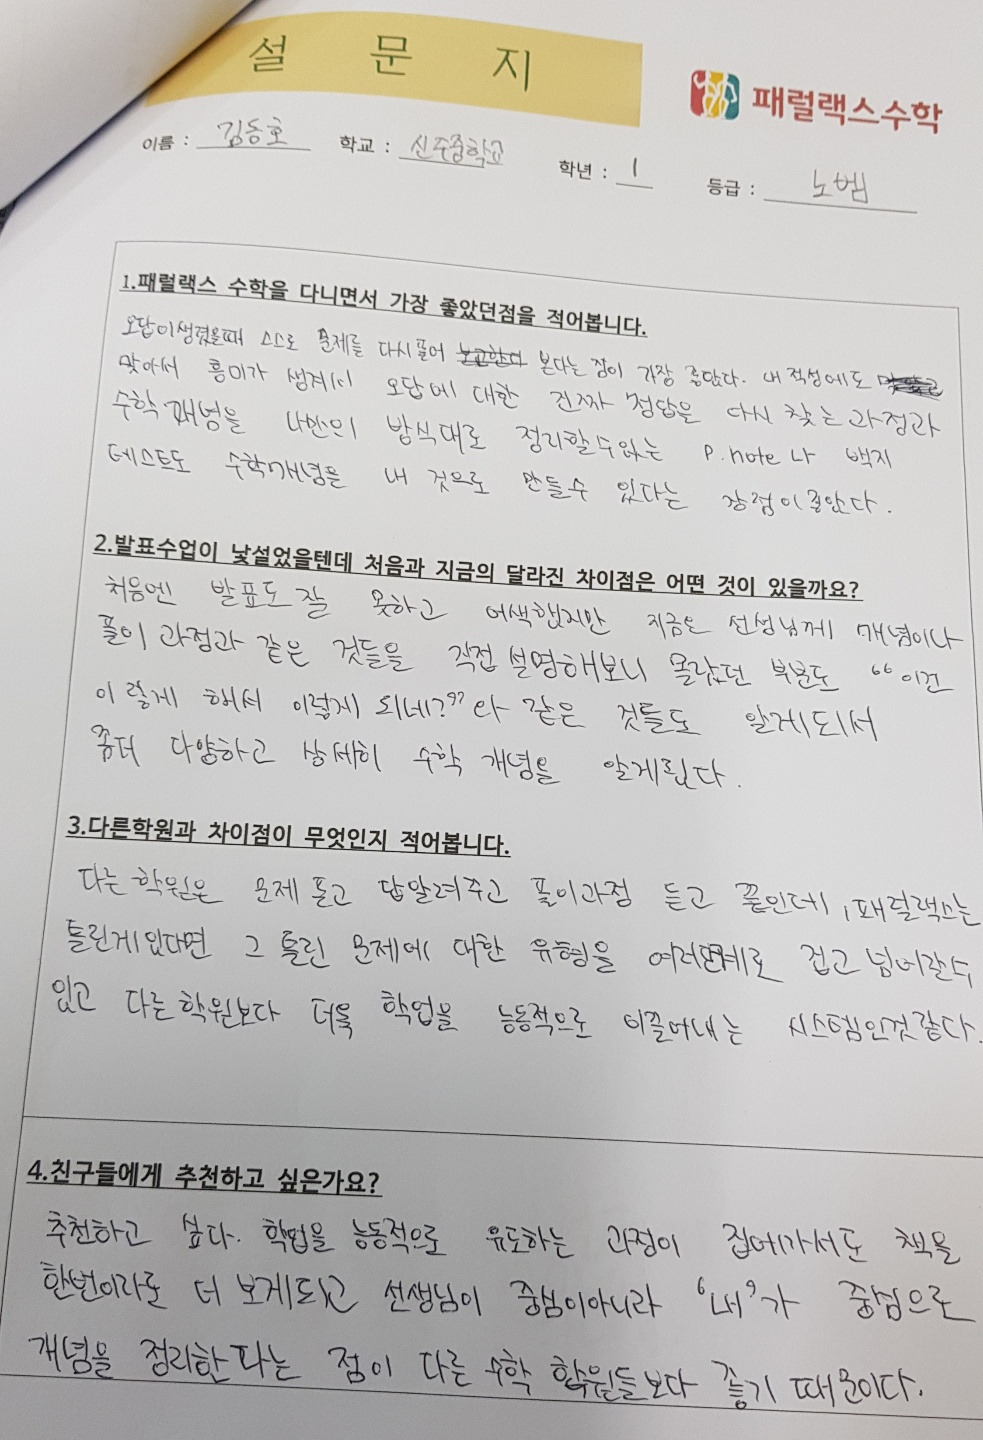 설 문 지
패럴랙스수학
이름 : 김동호 학교 : 신주중학교 학년 : 1 등급 : 노벨
1.패럴랙스 수학을 다니면서 가장 좋았던점을 적어봅니다.
오답이생겼을때 스스로 문제를 다시풀어 본다는 점이 가장 좋았다. 내적성에도
맞아서 흥미가 생겨서 오답에 대한 진짜 정답을 다시 찾는 과정과
수학개념을 나만의 방식대로 정리할수있는 P.note나 백지
테스트도 수학개념을 내 것으로 만들수 있다는 장점이좋았다.
2.발표수업이 낯설었을텐데 처음과 지금의 달라진 차이점은 어떤 것이 있을까요?
처음엔 발표도 잘 못하고 어색했지만 지금은 선생님께 개념이나
풀이 과정과 같은 것들을 직접 설명해보니 몰랐던 부분도 “이건
이렇게 해서 이렇게 되네?”라 같은 것들도 알게되서
좀더 다양하고 상세히 수학 개념을 알게된다.
3.다른학원과 차이점이 무엇인지 적어봅니다.
다른학원은 문제 풀고 답알려주고 풀이과정 듣고 끝인데, 패럴랙스는
틀린게있다면 그 틀린 문제에 대한 유형을 여러단계로 잡고 넘어갈수
있고 다른학원보다 더욱 학업을 능동적으로 이끌어내는 시스템인것같다.
4.친구들에게 추천하고 싶은가요?
추천하고 싶다. 학업을 능동적으로 유도하는 과정이 집에가서도 책을
한번이라도 더 보게되고 선생님이 중심이아니라 ‘내’가 중심으로
개념을 정리한다는 점이 다른 수학 학원들보다 좋기 때문이다.